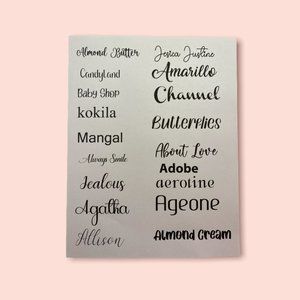 Almond Butter
CandyLand
Baby Shop
kokila
Mangal
Always Smile
Jealous
Agatha
Allison
Jesica Justine
Amarillo
Channel
Butterflies
About Love
Adobe
aerotine
Ageone
Almond Cream